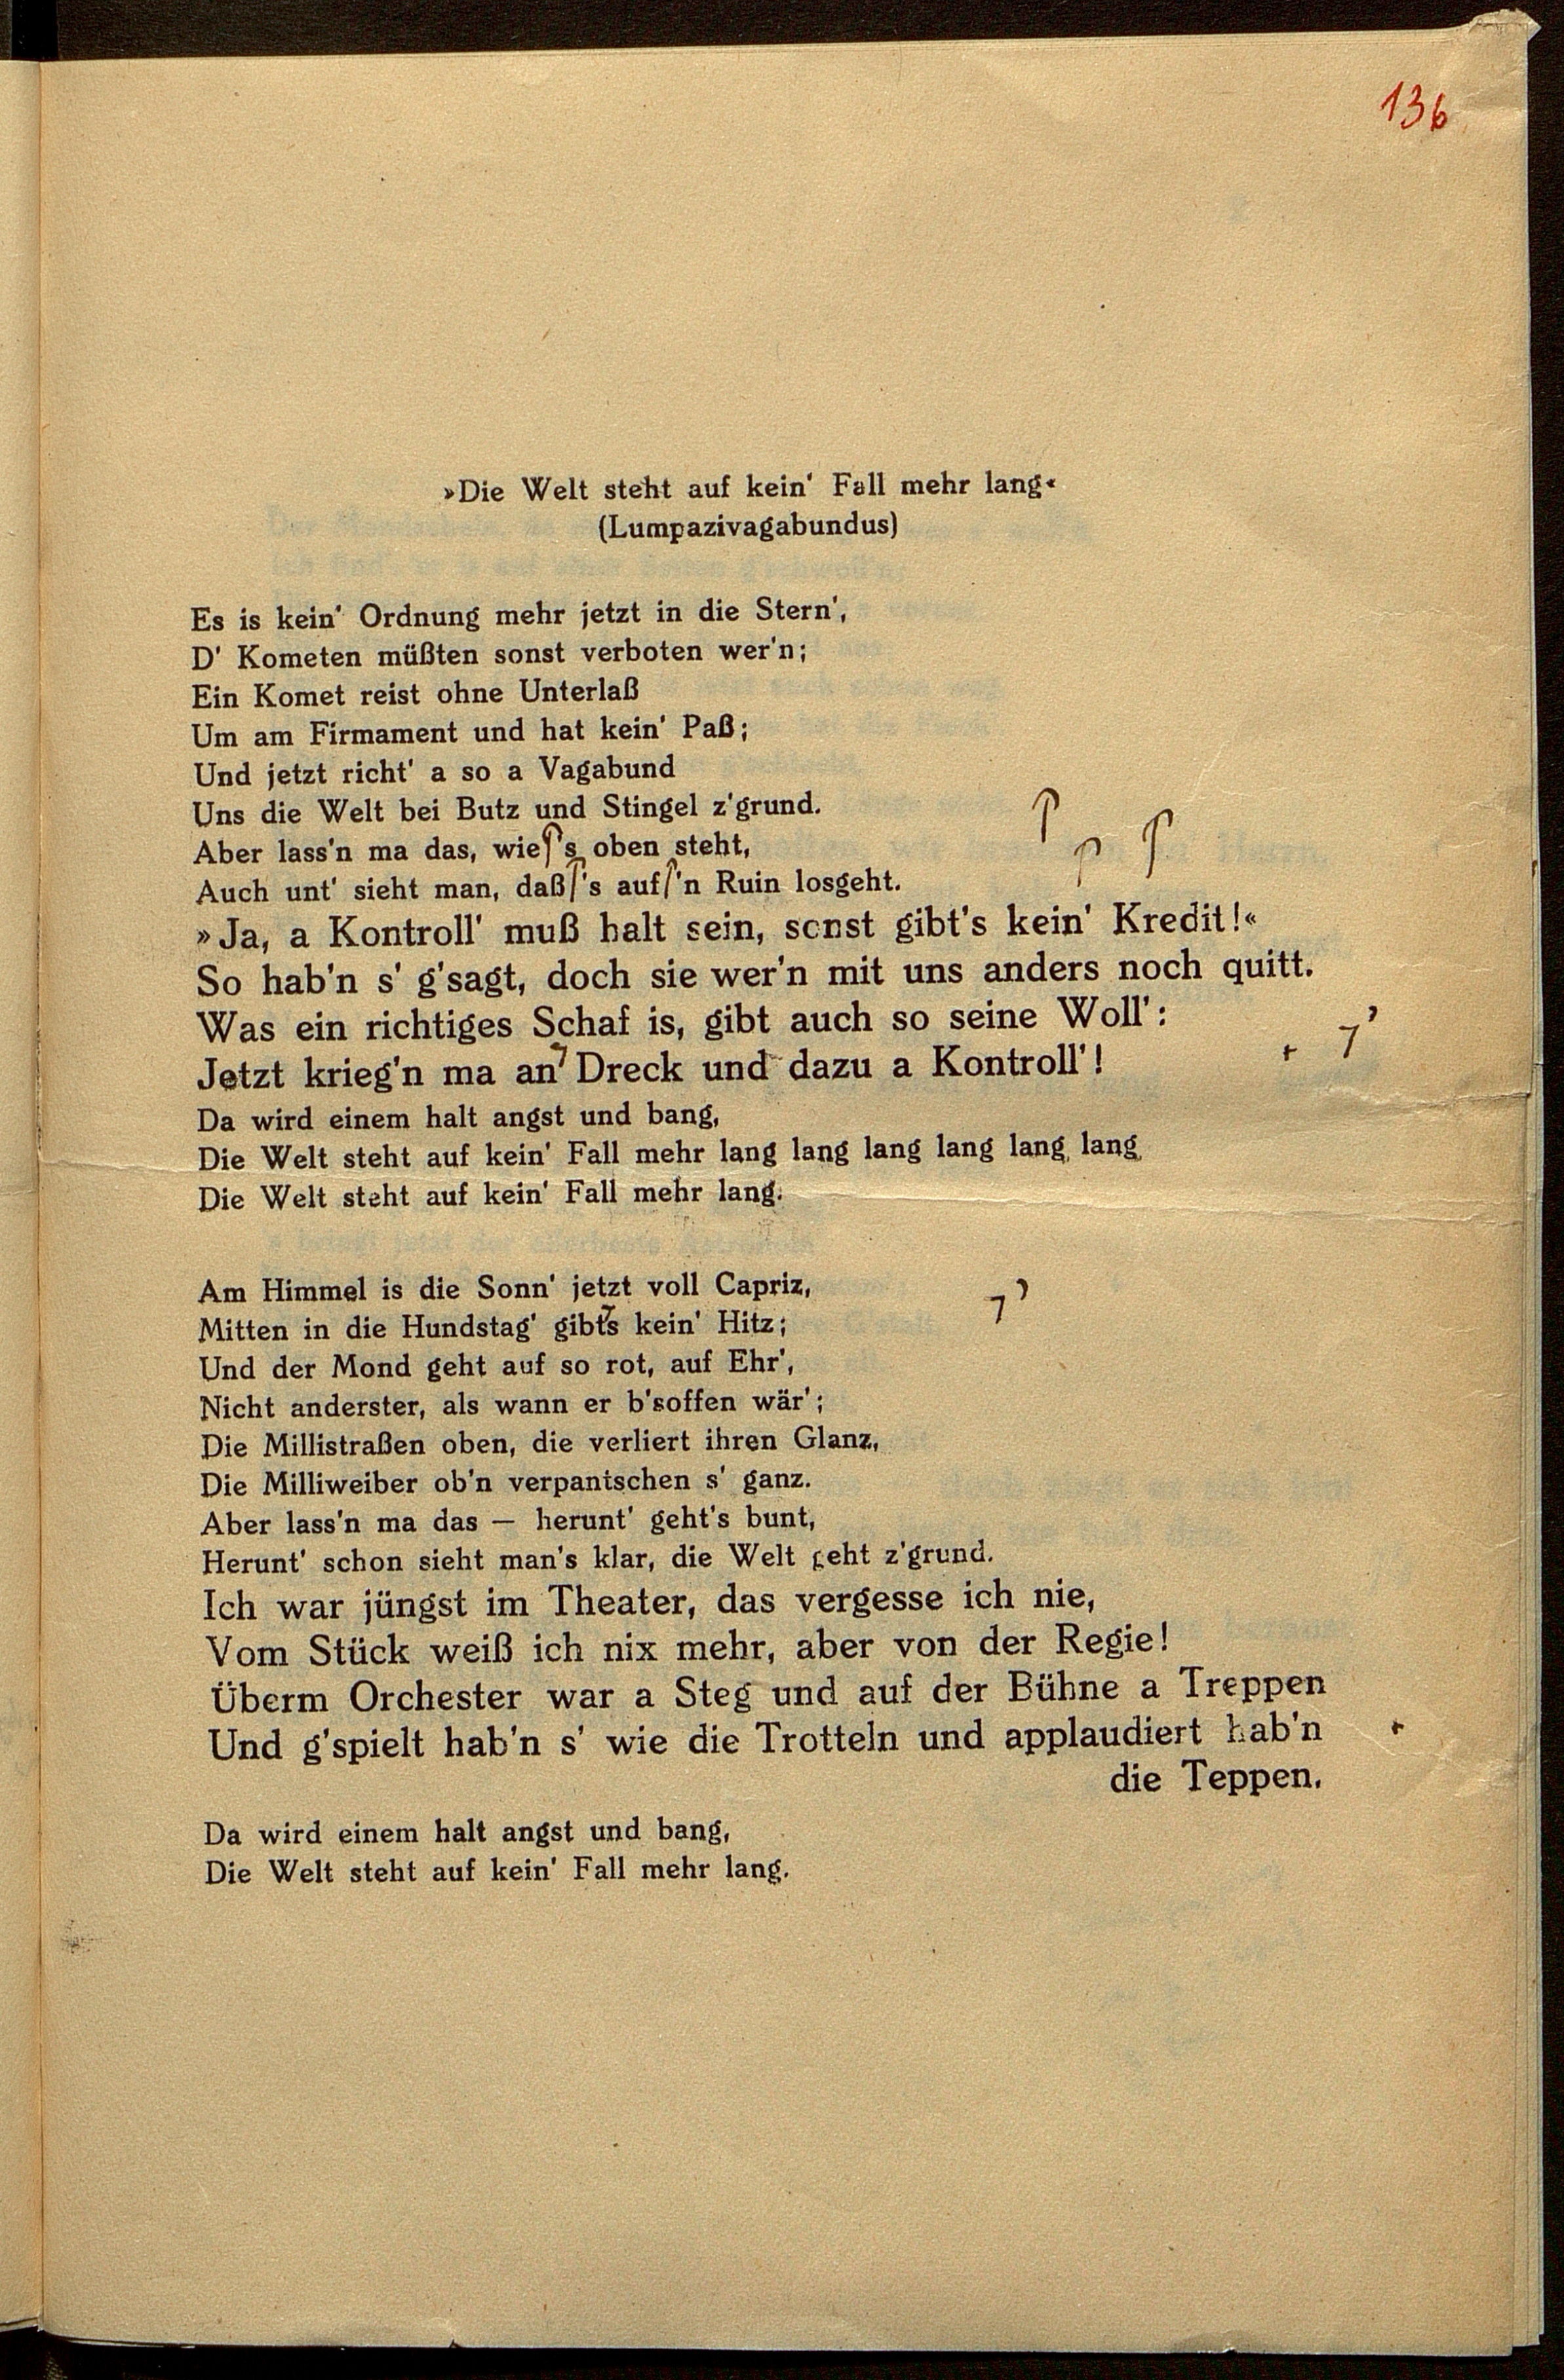 136
»Die Welt steht auf kein' Fall mehr lang«
(Lumpazivagabundus)
Es is kein' Ordnung mehr jetzt in die Stern',
D' Kometen müßten sonst verboten wer'n;
Ein Komet reist ohne Unterlaß
Um am Firmament und hat kein' Paß;
Und jetzt richt' a so a Vagabund
Uns die Welt bei Butz und Stingel z'grund.
Aber lass'n ma das, wie 's oben steht,
Auch unt' sieht man, daß 's auf 'n Ruin losgeht.
»Ja, a Kontroll' muß halt sein, sonst gibt's kein' Kredit!«
So hab'n s' g'sagt, doch sie wer'n mit uns anders noch quitt.
Was ein richtiges Schaf is, gibt auch so seine Woll':
Jetzt krieg'n ma an' Dreck und dazu a Kontroll'!
Da wird einem halt angst und bang,
Die Welt steht auf kein' Fall mehr lang lang lang lang lang, lang,
Die Welt steht auf kein' Fall mehr lang.
Am Himmel is die Sonn' jetzt voll Capriz,
Mitten in die Hundstag' gibt's kein' Hitz;
Und der Mond geht auf so rot, auf Ehr',
Nicht anderster, als wann er b'soffen wär';
Die Millistraßen oben, die verliert ihren Glanz,
Die Milliweiber ob'n verpantschen s' ganz.
Aber lass'n ma das — herunt' geht's bunt,
Herunt' schon sieht man's klar, die Welt geht z'grund.
Ich war jüngst im Theater, das vergesse ich nie,
Vom Stück weiß ich nix mehr, aber von der Regie!
Überm Orchester war a Steg und auf der Bühne a Treppen
Und g'spielt hab'n s' wie die Trotteln und applaudiert hab'n
die Teppen.
Da wird einem halt angst und bang,
Die Welt steht auf kein' Fall mehr lang.